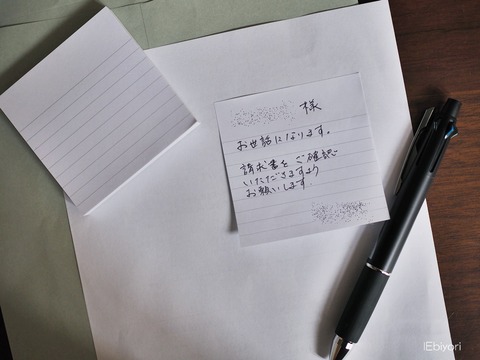 様
お世話になります。
請求書をご確認
いただきますよう
お願いします.
lEbiyori